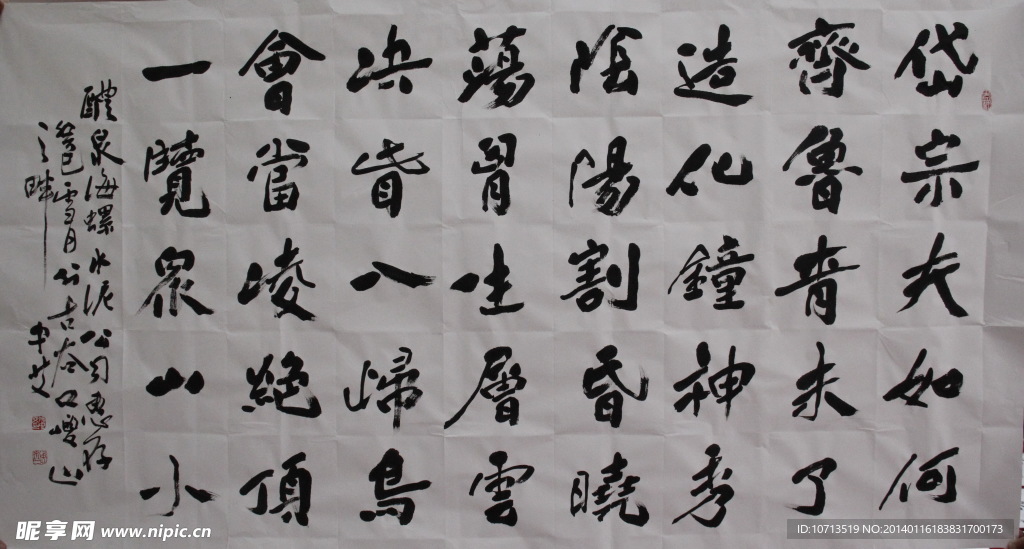 岱宗夫如何
齊魯青未了
造化鐘神秀
陰陽割昏曉
蕩胷生層雲
决眥入歸鳥
會當凌絶頂
一覽衆山小
醴泉海螺水泥公司惠存
癸巳雪月於古
山
之畔
昵享网 www.nipic.cn
ID:10713519 NO:20140116183831700173